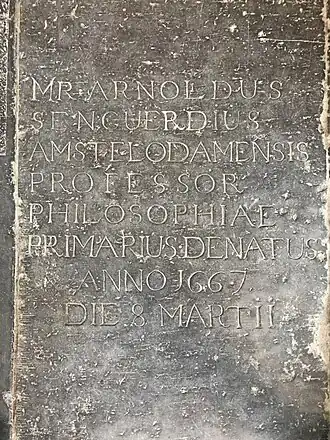 MR·ARNOLDUS
SENGUERDIUS
AMSTELODAMENSIS
PROFESSOR
PHILOSOPHIAE
PRIMARIUS·DENATUS
ANNO 1667.
DIE 8 MARTII